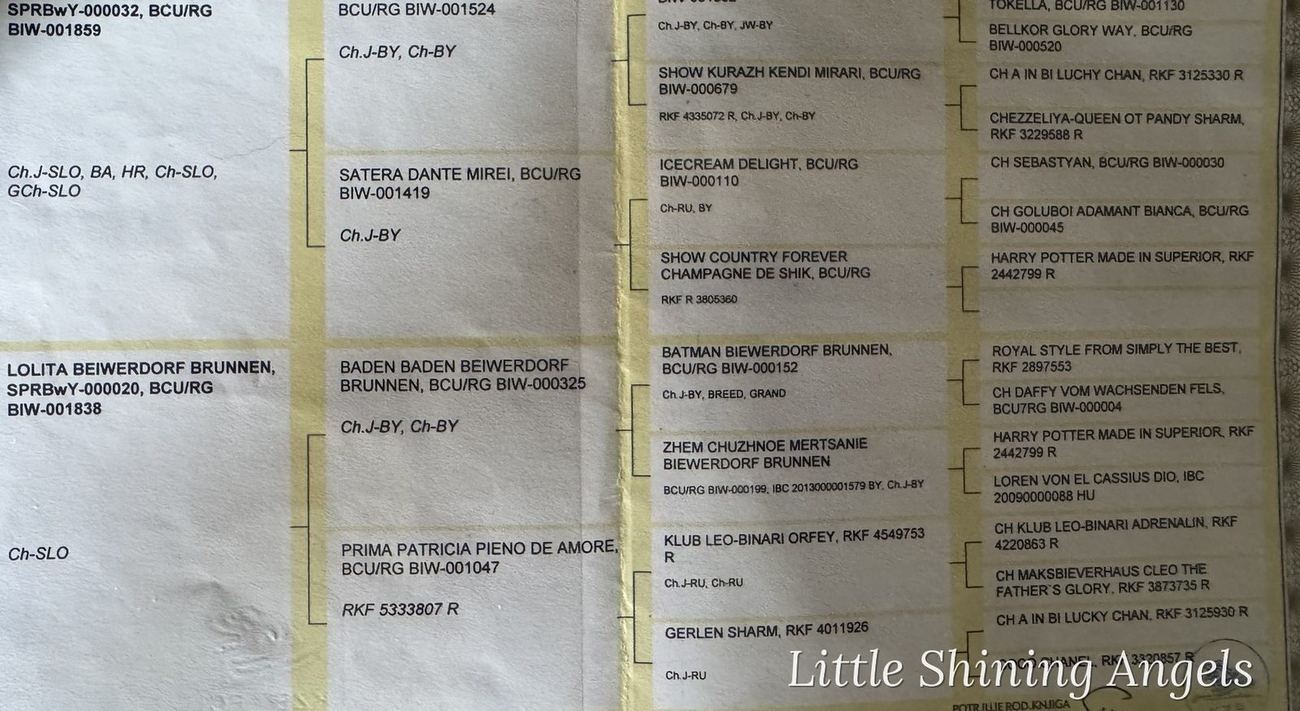 SPRBwY-000032, BCU/RG
BIW-001859
Ch.J-SLO, BA, HR, Ch-SLO,
GCh-SLO
LOLITA BEIWERDORF BRUNNEN,
SPRBwY-000020, BCU/RG
BIW-001838
Ch-SLO
BCU/RG BIW-001524
Ch.J-BY, Ch-BY
SATERA DANTE MIREI, BCU/RG
BIW-001419
Ch.J-BY
BADEN BADEN BEIWERDORF
BRUNNEN, BCU/RG BIW-000325
Ch.J-BY, Ch-BY
PRIMA PATRICIA PIENO DE AMORE,
BCU/RG BIW-001047
RKF 5333807 R
Ch.J-BY, Ch-BY, JW-BY
SHOW KURAZH KENDI MIRARI, BCU/RG
BIW-000679
RKF 4335072 R, Ch.J-BY, Ch-BY
ICECREAM DELIGHT, BCU/RG
BIW-000110
Ch-RU, BY
SHOW COUNTRY FOREVER
CHAMPAGNE DE SHIK, BCU/RG
RKF R 3805360
BATMAN BIEWERDORF BRUNNEN,
BCU/RG BIW-000152
Ch.J-BY, BREED, GRAND
ZHEM CHUZHNOE MERTSANIE
BIEWERDORF BRUNNEN
BCU/RG BIW-000199, IBC 2013000001579 BY, Ch.J-BY
KLUB LEO-BINARI ORFEY, RKF 4549753
R
Ch.J-RU, Ch-RU
GERLEN SHARM, RKF 4011926
Ch.J-RU
TOKELLA, BCU/RG BIW-001130
BELLKOR GLORY WAY, BCU/RG
BIW-000520
CH A IN BI LUCHY CHAN, RKF 3125330 R
CHEZZELIYA-QUEEN OT PANDY SHARM,
RKF 3229588 R
CH SEBASTYAN, BCU/RG BIW-000030
CH GOLUBOI ADAMANT BIANCA, BCU/RG
BIW-000045
HARRY POTTER MADE IN SUPERIOR, RKF
2442799 R
ROYAL STYLE FROM SIMPLY THE BEST,
RKF 2897553
CH DAFFY VOM WACHSENDEN FELS,
BCU7RG BIW-000004
HARRY POTTER MADE IN SUPERIOR, RKF
2442799 R
LOREN VON EL CASSIUS DIO, IBC
20090000088 HU
CH KLUB LEO-BINARI ADRENALIN, RKF
4220863 R
CH MAKSBIEVERHAUS CLEO THE
FATHER'S GLORY, RKF 3873735 R
CH A IN BI LUCKY CHAN, RKF 3125930 R
CHANEL, RKF 3320857 R
POTRJUJE ROD.KNJIGA
Little Shining Angels